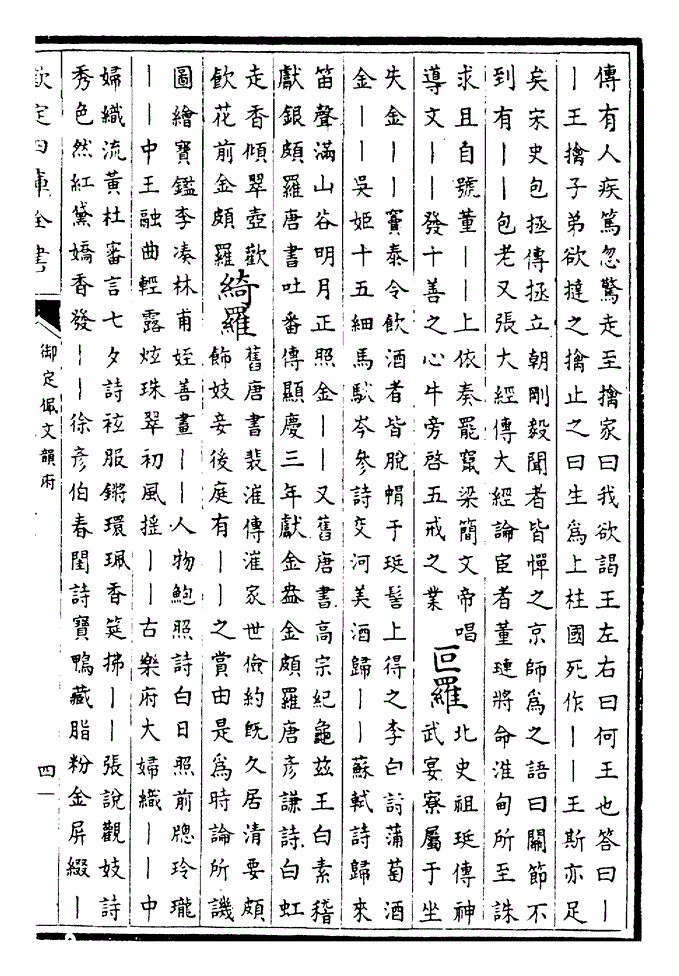 傳有人疾篤忽驚走至擒家曰我欲謁王左右曰何王也答曰丨
丨王擒子弟欲撻之擒止之曰生爲上柱國死作丨丨王斯亦足
矣宋史包拯傳拯立朝剛毅聞者皆憚之京師爲之語曰關節不
到有丨丨包老又張大經傳大經論宦者董璉將命淮甸所至誅
求且自號董丨丨上依奏罷竄梁簡文帝唱
導文丨丨發十善之心牛旁啓五戒之業
叵羅
北史祖珽傳神
武宴寮屬于坐
失金丨丨竇泰令飲酒者皆脫帽于珽髻上得之李白詩蒲萄酒
金丨丨吳姬十五細馬馱岑參詩交河美酒歸丨丨蘇軾詩歸來
笛聲滿山谷明月正照金丨丨又舊唐書高宗紀龜茲王白素稽
獻銀頗羅唐書吐番傳顯慶三年獻金盎金頗羅唐彥謙詩白虹
走香傾翠壺歡
飲花前金頗羅
綺羅
舊唐書裴漼傳漼家世儉約旣久居清要頗
飾妓妾後庭有丨丨之賞由是爲時論所譏
圖繪寶鑑李湊林甫姪善畫丨丨人物鮑照詩白日照前牕玲瓏
丨丨中王融曲輕露炫珠翠初風摇丨丨古樂府大婦織丨丨中
婦織流黃杜審言七夕詩袨服鏘環珮香筵拂丨丨張說觀妓詩
秀色然紅黛嬌香發丨丨徐彥伯春閨詩寶鴨藏脂粉金屏綴丨
欽定四庫全書
御定佩文韻府
四一